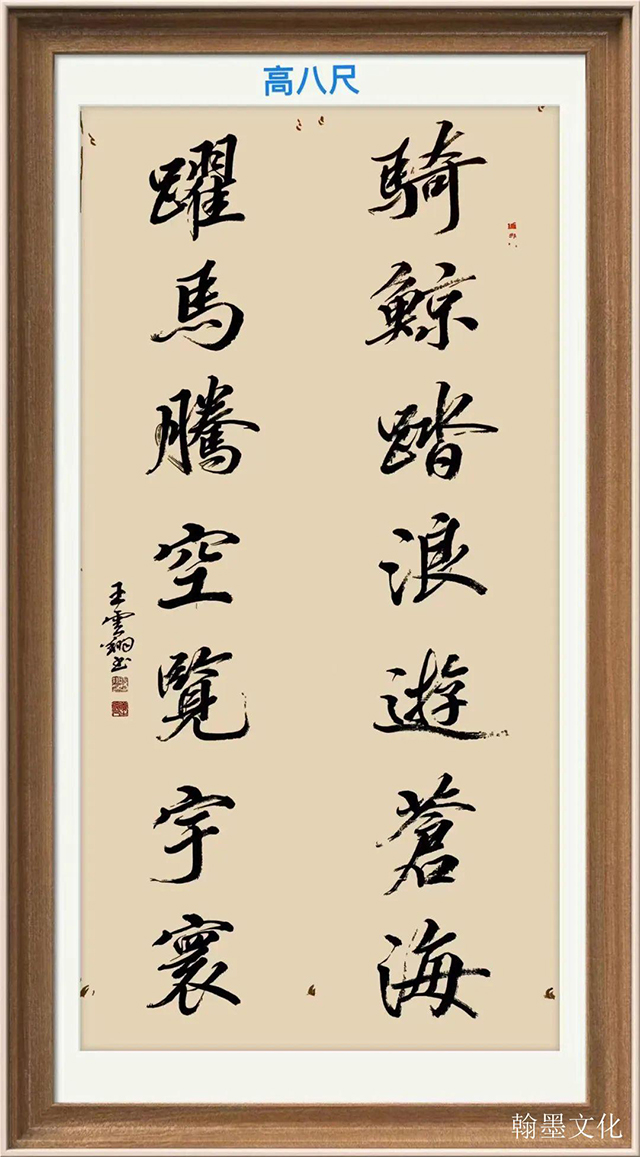 高八尺
騎鯨踏浪遊蒼海
躍馬騰空覽宇寰
王雲翔書
翰墨文化